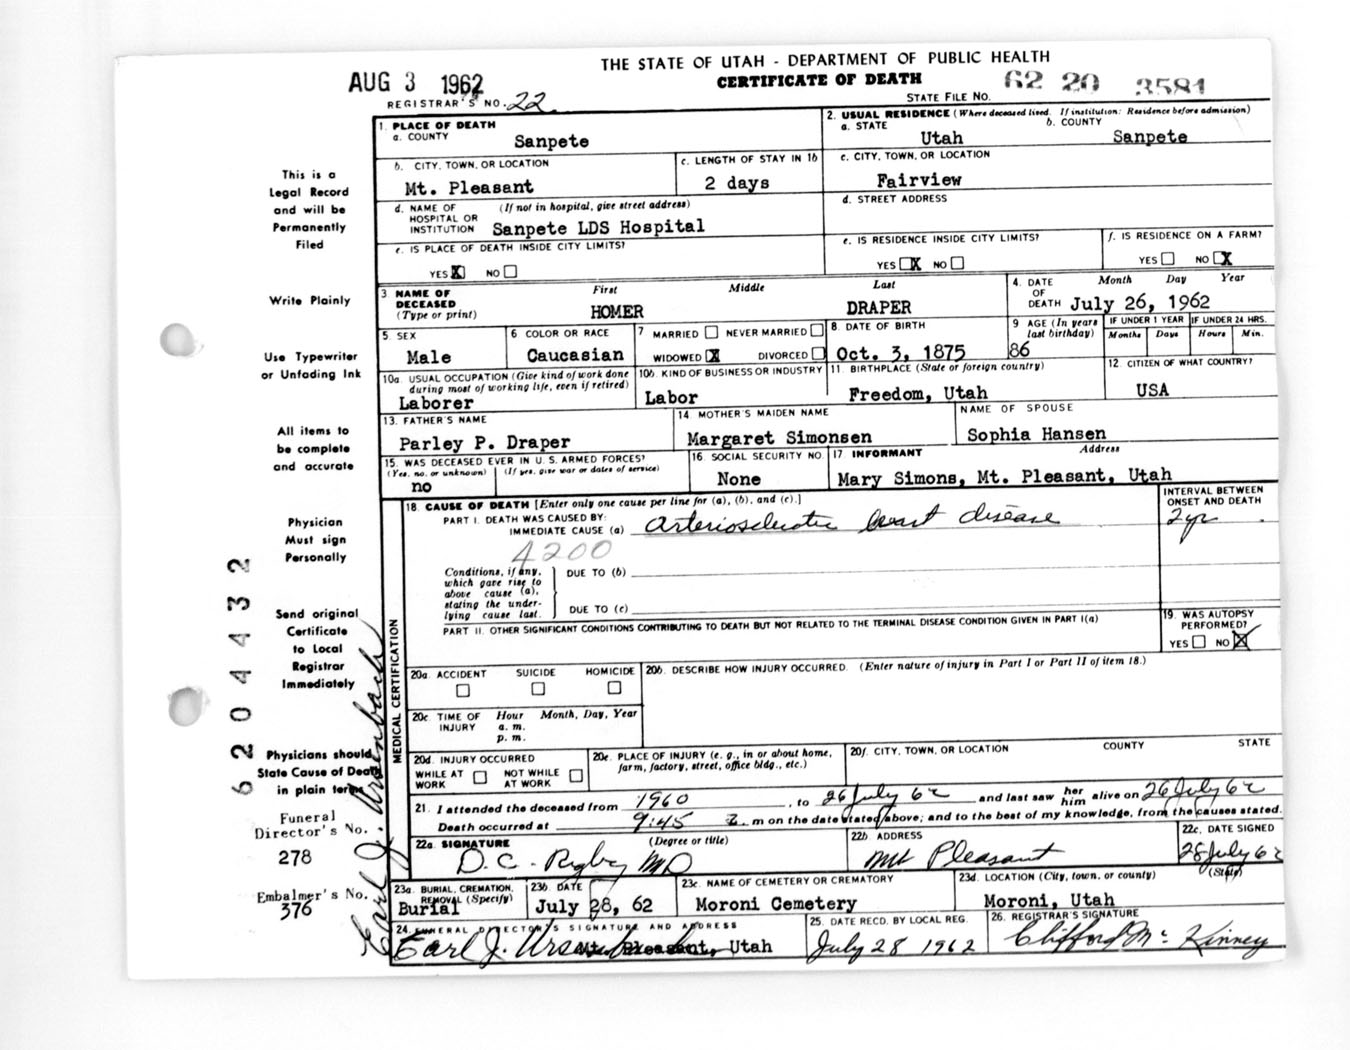 THE STATE OF UTAH - DEPARTMENT OF PUBLIC HEALTH
CERTIFICATE OF DEATH
AUG 3 1962
REGISTRAR'S NO. 22.
STATE FILE NO. 62 20 3581
This is a
Legal Record
and will be
Permanently
Filed
Write Plainly
Use Typewriter
or Unfading Ink
All items to
be complete
and accurate
Physician
Must sign
Personally
Send original
Certificate
to Local
Registrar
Immediately
Physicians should
State Cause of Death
in plain terms
Funeral
Director's No.
278
Embalmer's No.
376
6204432
Earl J. Ursenbach
1. PLACE OF DEATH
a. COUNTY Sanpete
2. USUAL RESIDENCE (Where deceased lived. If institution: Residence before admission)
a. STATE Utah b. COUNTY Sanpete
b. CITY, TOWN, OR LOCATION Mt. Pleasant
c. LENGTH OF STAY IN 1b 2 days
c. CITY, TOWN, OR LOCATION Fairview
d. NAME OF HOSPITAL OR INSTITUTION (If not in hospital, give street address) Sanpete LDS Hospital
d. STREET ADDRESS
e. IS PLACE OF DEATH INSIDE CITY LIMITS?
YES X NO
e. IS RESIDENCE INSIDE CITY LIMITS?
YES X NO
f. IS RESIDENCE ON A FARM?
YES NO X
3 NAME OF DECEASED (Type or print) First Middle Last
HOMER DRAPER
4. DATE OF DEATH Month Day Year
July 26, 1962
5. SEX Male
6 COLOR OR RACE Caucasian
7 MARRIED NEVER MARRIED
WIDOWED X DIVORCED
8. DATE OF BIRTH Oct. 3, 1875
9 AGE (In years last birthday) 86
IF UNDER 1 YEAR Months Days
IF UNDER 24 HRS. Hours Min.
10a. USUAL OCCUPATION (Give kind of work done during most of working life, even if retired) Laborer
10b. KIND OF BUSINESS OR INDUSTRY Labor
11. BIRTHPLACE (State or foreign country) Freedom, Utah
12. CITIZEN OF WHAT COUNTRY? USA
13. FATHER'S NAME Parley P. Draper
14 MOTHER'S MAIDEN NAME Margaret Simonsen
NAME OF SPOUSE Sophia Hansen
15. WAS DECEASED EVER IN U. S. ARMED FORCES?
(Yes, no. or unknown) (If yes, give war or dates of service)
no
16. SOCIAL SECURITY NO. None
17. INFORMANT Address
Mary Simons, Mt. Pleasant, Utah
MEDICAL CERTIFICATION
18. CAUSE OF DEATH [Enter only one cause per line for (a), (b), and (c).]
PART I. DEATH WAS CAUSED BY:
IMMEDIATE CAUSE (a) Arteriosclerotic heart disease
INTERVAL BETWEEN ONSET AND DEATH
2 yr
4200
Conditions, if any, which gave rise to above cause (a), stating the underlying cause last.
DUE TO (b)
DUE TO (c)
PART II. OTHER SIGNIFICANT CONDITIONS CONTRIBUTING TO DEATH BUT NOT RELATED TO THE TERMINAL DISEASE CONDITION GIVEN IN PART I(a)
19. WAS AUTOPSY PERFORMED?
YES NO X
20a. ACCIDENT SUICIDE HOMICIDE
20b. DESCRIBE HOW INJURY OCCURRED. (Enter nature of injury in Part I or Part II of item 18.)
20c. TIME OF INJURY Hour Month, Day, Year
a. m.
p. m.
20d. INJURY OCCURRED
WHILE AT WORK NOT WHILE AT WORK
20e. PLACE OF INJURY (e. g., in or about home, farm, factory, street, office bldg., etc.)
20f. CITY, TOWN, OR LOCATION COUNTY STATE
21. I attended the deceased from 1960, to 26 July 62 and last saw her him alive on 26 July 62
Death occurred at 9:45 m on the date stated above; and to the best of my knowledge, from the causes stated.
22a. SIGNATURE (Degree or title)
D. C. Rigby MD
22b ADDRESS
Mt Pleasant
22c. DATE SIGNED
28 July 62
23a. BURIAL, CREMATION, REMOVAL (Specify) Burial
23b. DATE July 28, 62
23c. NAME OF CEMETERY OR CREMATORY Moroni Cemetery
23d. LOCATION (City, town, or county) (State)
Moroni, Utah
24. FUNERAL DIRECTOR'S SIGNATURE AND ADDRESS
Earl J. Ursenbach Mt. Pleasant, Utah
25. DATE RECD. BY LOCAL REG.
July 28 1962
26. REGISTRAR'S SIGNATURE
Clifford Mc Kinney